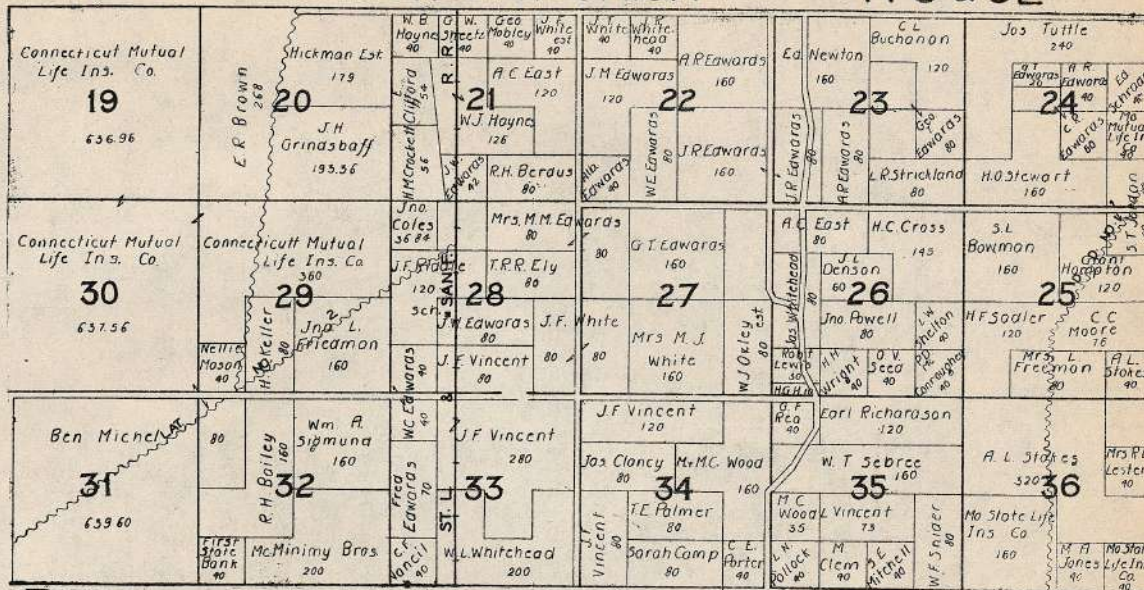 Connecticut Mutual
Life Ins. Co.
19
636.96
E R Brown
268
Hickman Est.
179
20
J.H
Grindsbaff
195.56
W. B
Hayne
40
G
Sheetz
40
W.
Geo
Mobley
40
J. F.
White
est
40
R. R.
Clifford
54
H M Crockett
56
21
A C East
120
W.J. Hayne
126
J. W.
Edwards
42
R.H. Berdus
80
J. T
White
40
W. R.
White-
head
40
J. M Edwards
120
22
A.R. Edwards
160
Alb.
Edwards
40
W E. Edwards
80
J.R. Edwards
160
Ed. Newton
160
C L
Buchanon
120
23
J. R Edwards
80
A R Edwards
80
Geo
Edwards
80
L R. Strickland
80
Jos Tuttle
240
G T
Edwards
20
A. R.
Edwards
40
24
C. P.
Edwards
80
Ed
Schraa
40
Mo
Mutual
Life In
Co
40
H.O. Stewart
160
Connecticut Mutual
Life Ins. Co.
30
637.56
Connecticutt Mutual
Life Ins. Co
360
29
Nellie
Mason
40
H. O Keller
80
Jno L.
Friedman
160
Jno.
Coles
36 84
J.F. Biddle
120
Sch.
SAN F.
28
Mrs. M.M. Edwards
80
T.R.R. Ely
80
J.W. Edwards
80
J. F. White
80
J. F Vincent
80
W C Edwards
40
80
G T. Edwards
160
27
80
Mrs M. J.
White
160
W J Oxley
est
80
A.C East
80
H.C. Cross
145
J. L
Denson
60
26
Jas Whitehead
80
Jno. Powell
80
L W
Shelton
40
Rob't
Lewis
30
H.G.H.
10
H.H
Wright
40
O. V.
Seed
40
P.D.
40
S.L
Bowman
160
25
S T Jordan
Hampton
120
H F Sadler
120
C C
Moore
76
Mrs L
Freeman
80
A L.
Stokes
40
Ben Michel
LAT
31
639 60
80
R. H Bailey
160
Wm. A.
Sigmund
160
32
First
State
Bank
40
Mc.Minimy Bros.
200
40
Fred
Edwards
70
C F
Vancil
40
ST. L. &
J F Vincent
280
33
W.L. Whitehead
200
J. F Vincent
120
Jos Clancy
80
M.+M.C. Wood
160
34
J. F
Vincent
80
T. E Palmer
80
Sarah Camp
80
C E.
Porter
40
G. F
Rea
40
Earl Richardson
120
W. T Sebree
160
35
M C
Wood
35
L Vincent
73
L. N.
Pollock
40
M
Clem
40
S. E
Mitchell
40
W. F. Snider
80
A. L. Stokes
320
36
Mrs R L
Lester
40
Mo State Life
Ins Co
160
M A
Jones
40
Mo. Stat
Life Ins
Co.
40